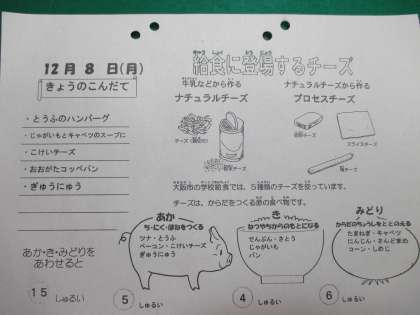 12月 8 日(月)
きょうのこんだて
・とうふのハンバーグ
・じゃがいもとキャベツのスープに
・こけいチーズ
・おおがたコッペパン
・ぎゅうにゅう
あか・き・みどりを
あわせると
15 しゅるい
給食に登場するチーズ
牛乳などから作る
ナチュラルチーズ
ナチュラルチーズから作る
プロセスチーズ
スライスチーズ
大阪市の学校給食では、5種類のチーズを使っています。
チーズは、からだをつくる の食べ物です。
あか
ち・にく・ほねをつくる
ツナ・とうふ
ベーコン・こけいチーズ
ぎゅうにゅう
5 しゅるい
き
ねつやちからのもとになる
でんぷん・さとう
じゃがいも
パン
4 しゅるい
みどり
からだのちょうしをととのえる
たまねぎ・キャベツ
にんじん・さんどまめ
コーン・しめじ
6 しゅるい